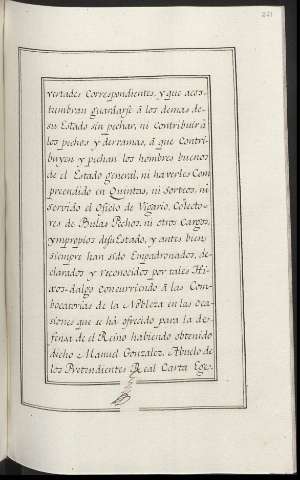 221
vertades Correspondientes, y que acos-
tumbran guardarse â los demas de-
su Estado sin pechar, ni Contribuir â
los pechos y derramas, â que Contri-
buyen y pechan los hombres buenos
de el Estado general, ni haverles Com
preendido en Quintas, ni Sorteos, ni
servido el Oficio de Vicario, Colecto-
res de Bulas Pechos, ni otros Cargos,
ympropios desu Estado, y antes bien
siempre han sido Empadronados, de-
clarados y reconocidos por tales Hi-
xos-dalgo concurriendo â las Com-
bocatorias de la Nobleza en las oca-
siones que se hâ ofrecido para la de-
fensa de el Reino habiendo obtenido
dicho Manuel Gonzalez, Abuelo de
los Pretendientes Real Carta Exe-